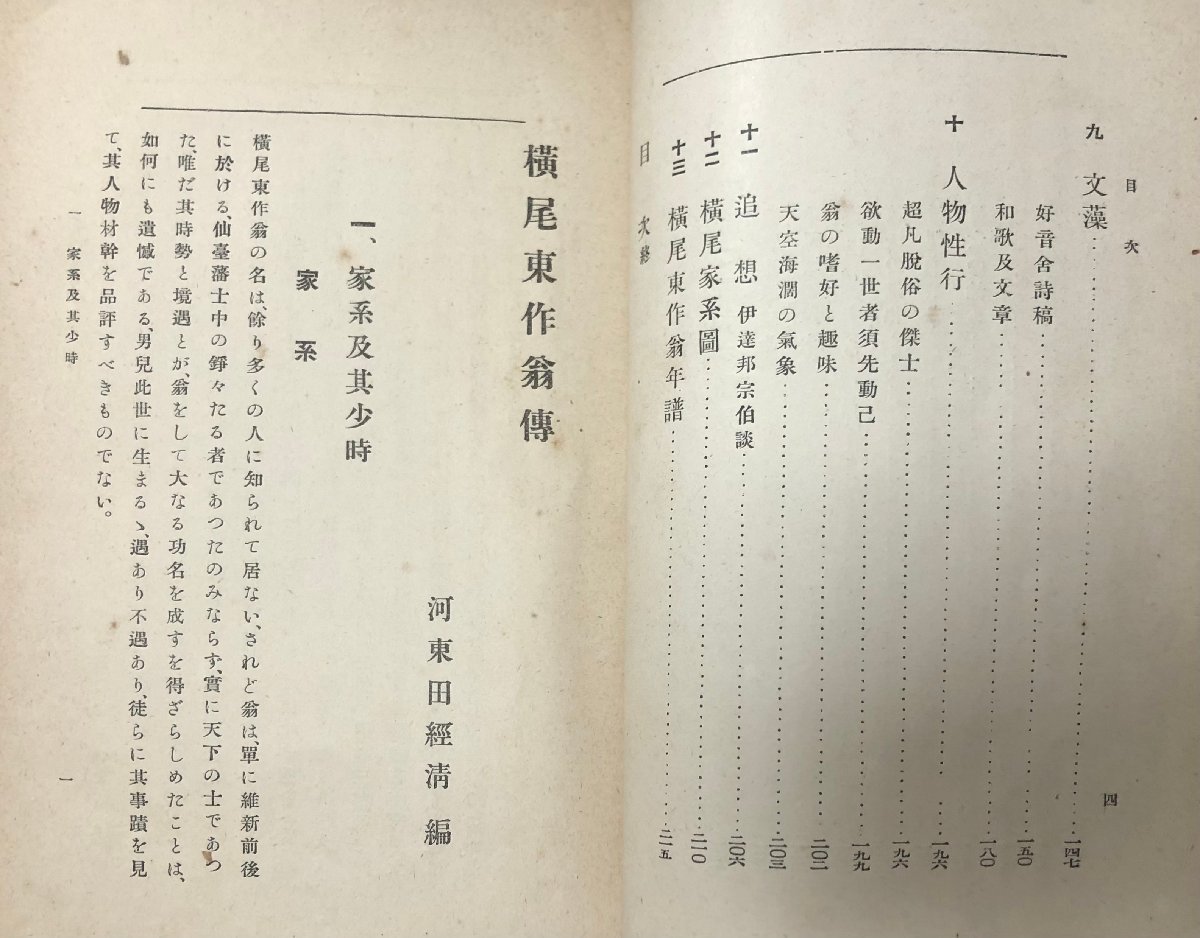 目次
四
九 文藻……一四七
好音舍詩稿……一五〇
和歌及文章……一八〇
十 人物性行……一九六
超凡脫俗の傑士……一九六
欲動一世者須先動己……一九九
翁の嗜好と趣味……二〇二
天空海濶の氣象……二〇三
十一 追想 伊達邦宗伯談……二〇六
十二 橫尾家系圖……二一〇
十三 橫尾東作翁年譜……二一五
目次終
橫尾東作翁傳
河東田經淸編
一、家系及其少時
家系
橫尾東作翁の名は、餘り多くの人に知られて居ない、されど翁は、單に維新前後
に於ける、仙臺藩士中の錚々たる者であつたのみならず、實に天下の士であつ
た、唯だ其時勢と境遇とが、翁をして大なる功名を成すを得ざらしめたことは、
如何にも遺憾である、男兒此世に生まるゝ、遇あり不遇あり、徒らに其事蹟を見
て、其人物材幹を品評すべきものでない。
一 家系及其少時
一